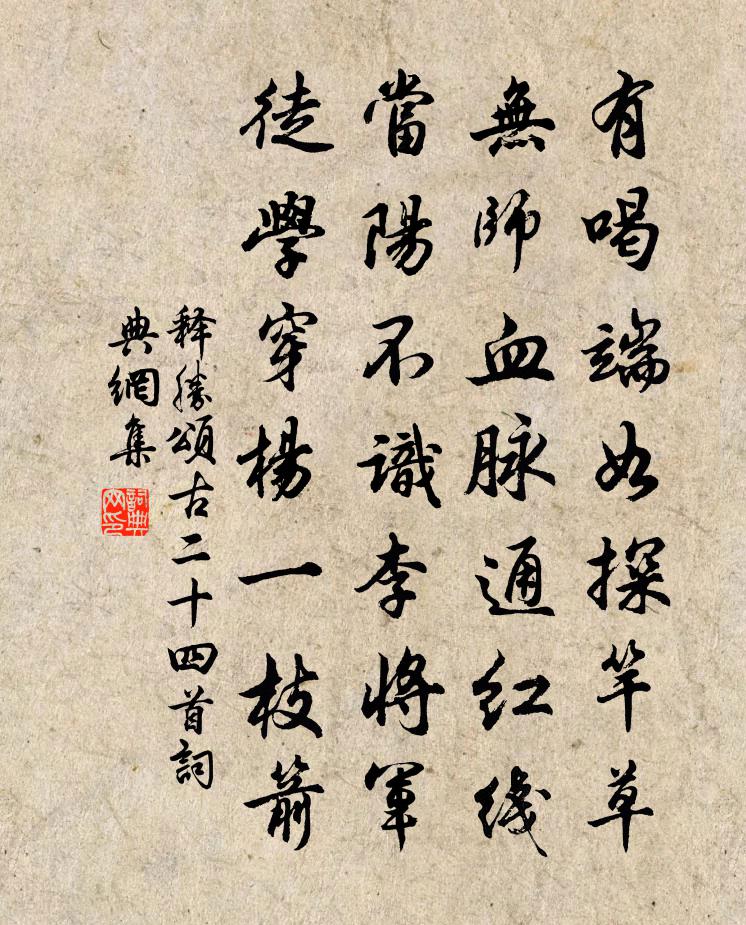 有喝端如探竿草
無師血脉通红綫
當陽不識李將軍
徒學穿楊一枝箭
释勝頌古二十四首詞
典網集
詞典
网印